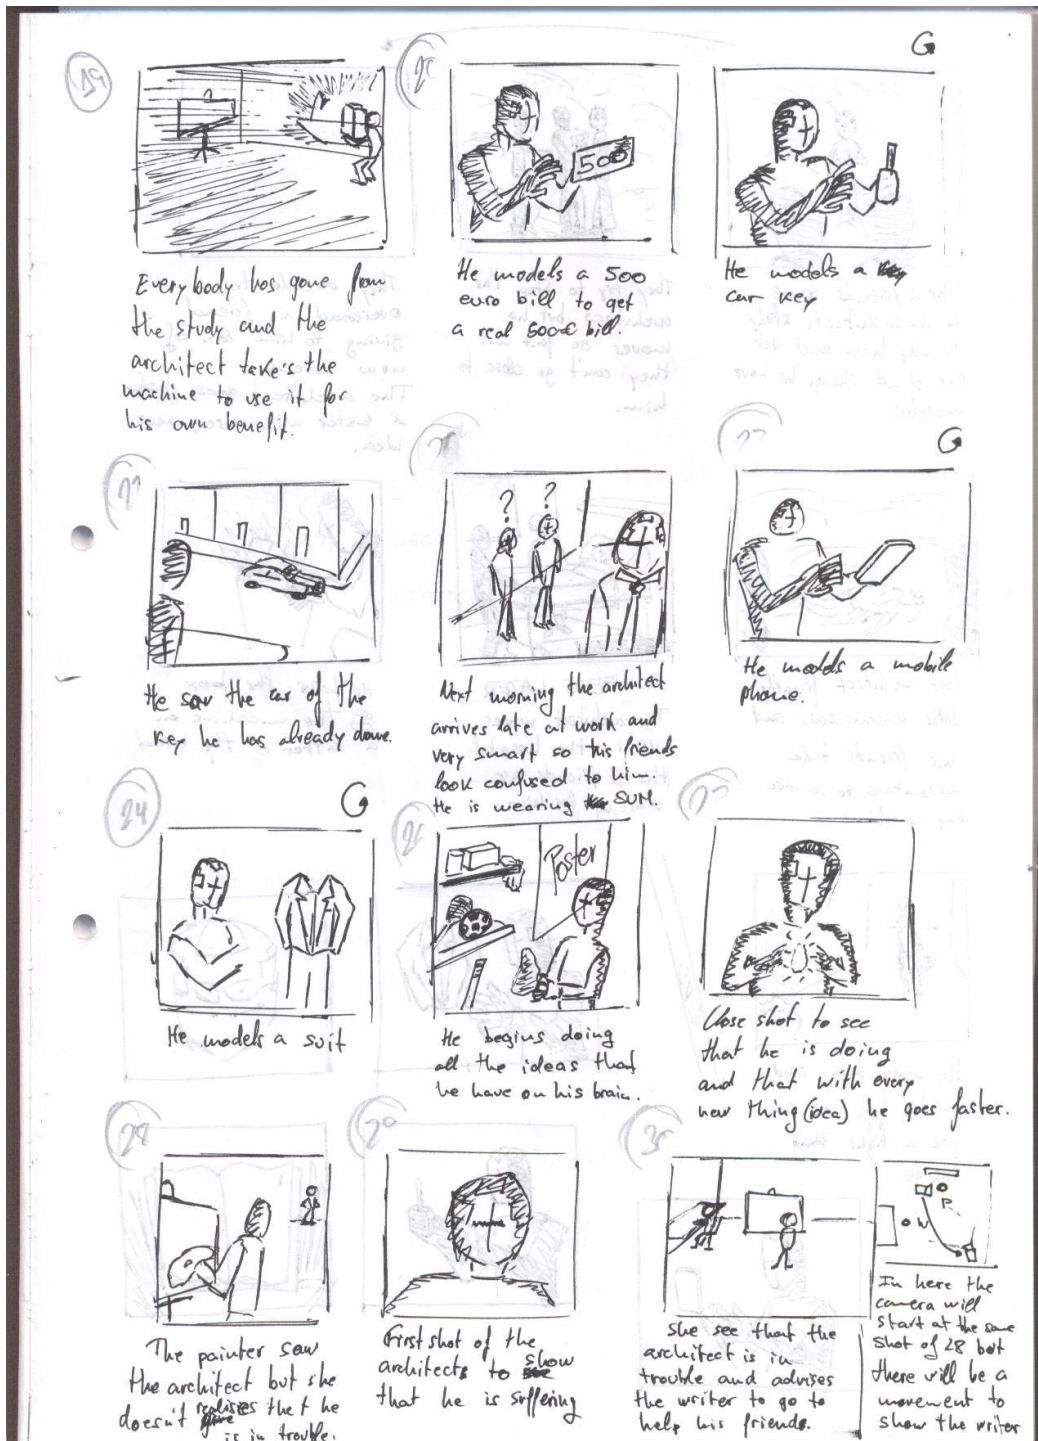 19
Everybody has gone from
the study and the
architect take's the
machine to use it for
his own benefit.
20
500
He models a 500
euro bill to get
a real 500€ bill.
G
He models a key
car key
He saw the car of the
key he has already done.
? ?
Next morning the architect
arrives late at work and
very smart so this friends
look confused to him.
He is wearing SUM.
G
He models a mobile
phone.
24
G
He models a suit
Poster
He begins doing
all the ideas that
he have on his brain.
Close shot to see
that he is doing
and that with every
new thing (idea) he goes faster.
28
The painter saw
the architect but she
doesn't realises that he
is in trouble.
29
First shot of the
architects to show
that he is suffering
30
She see that the
architect is in
trouble and advises
the writer to go to
help his friends.
P
W
In here the
camera will
start at the same
shot of 28 but
there will be a
movement to
show the writer